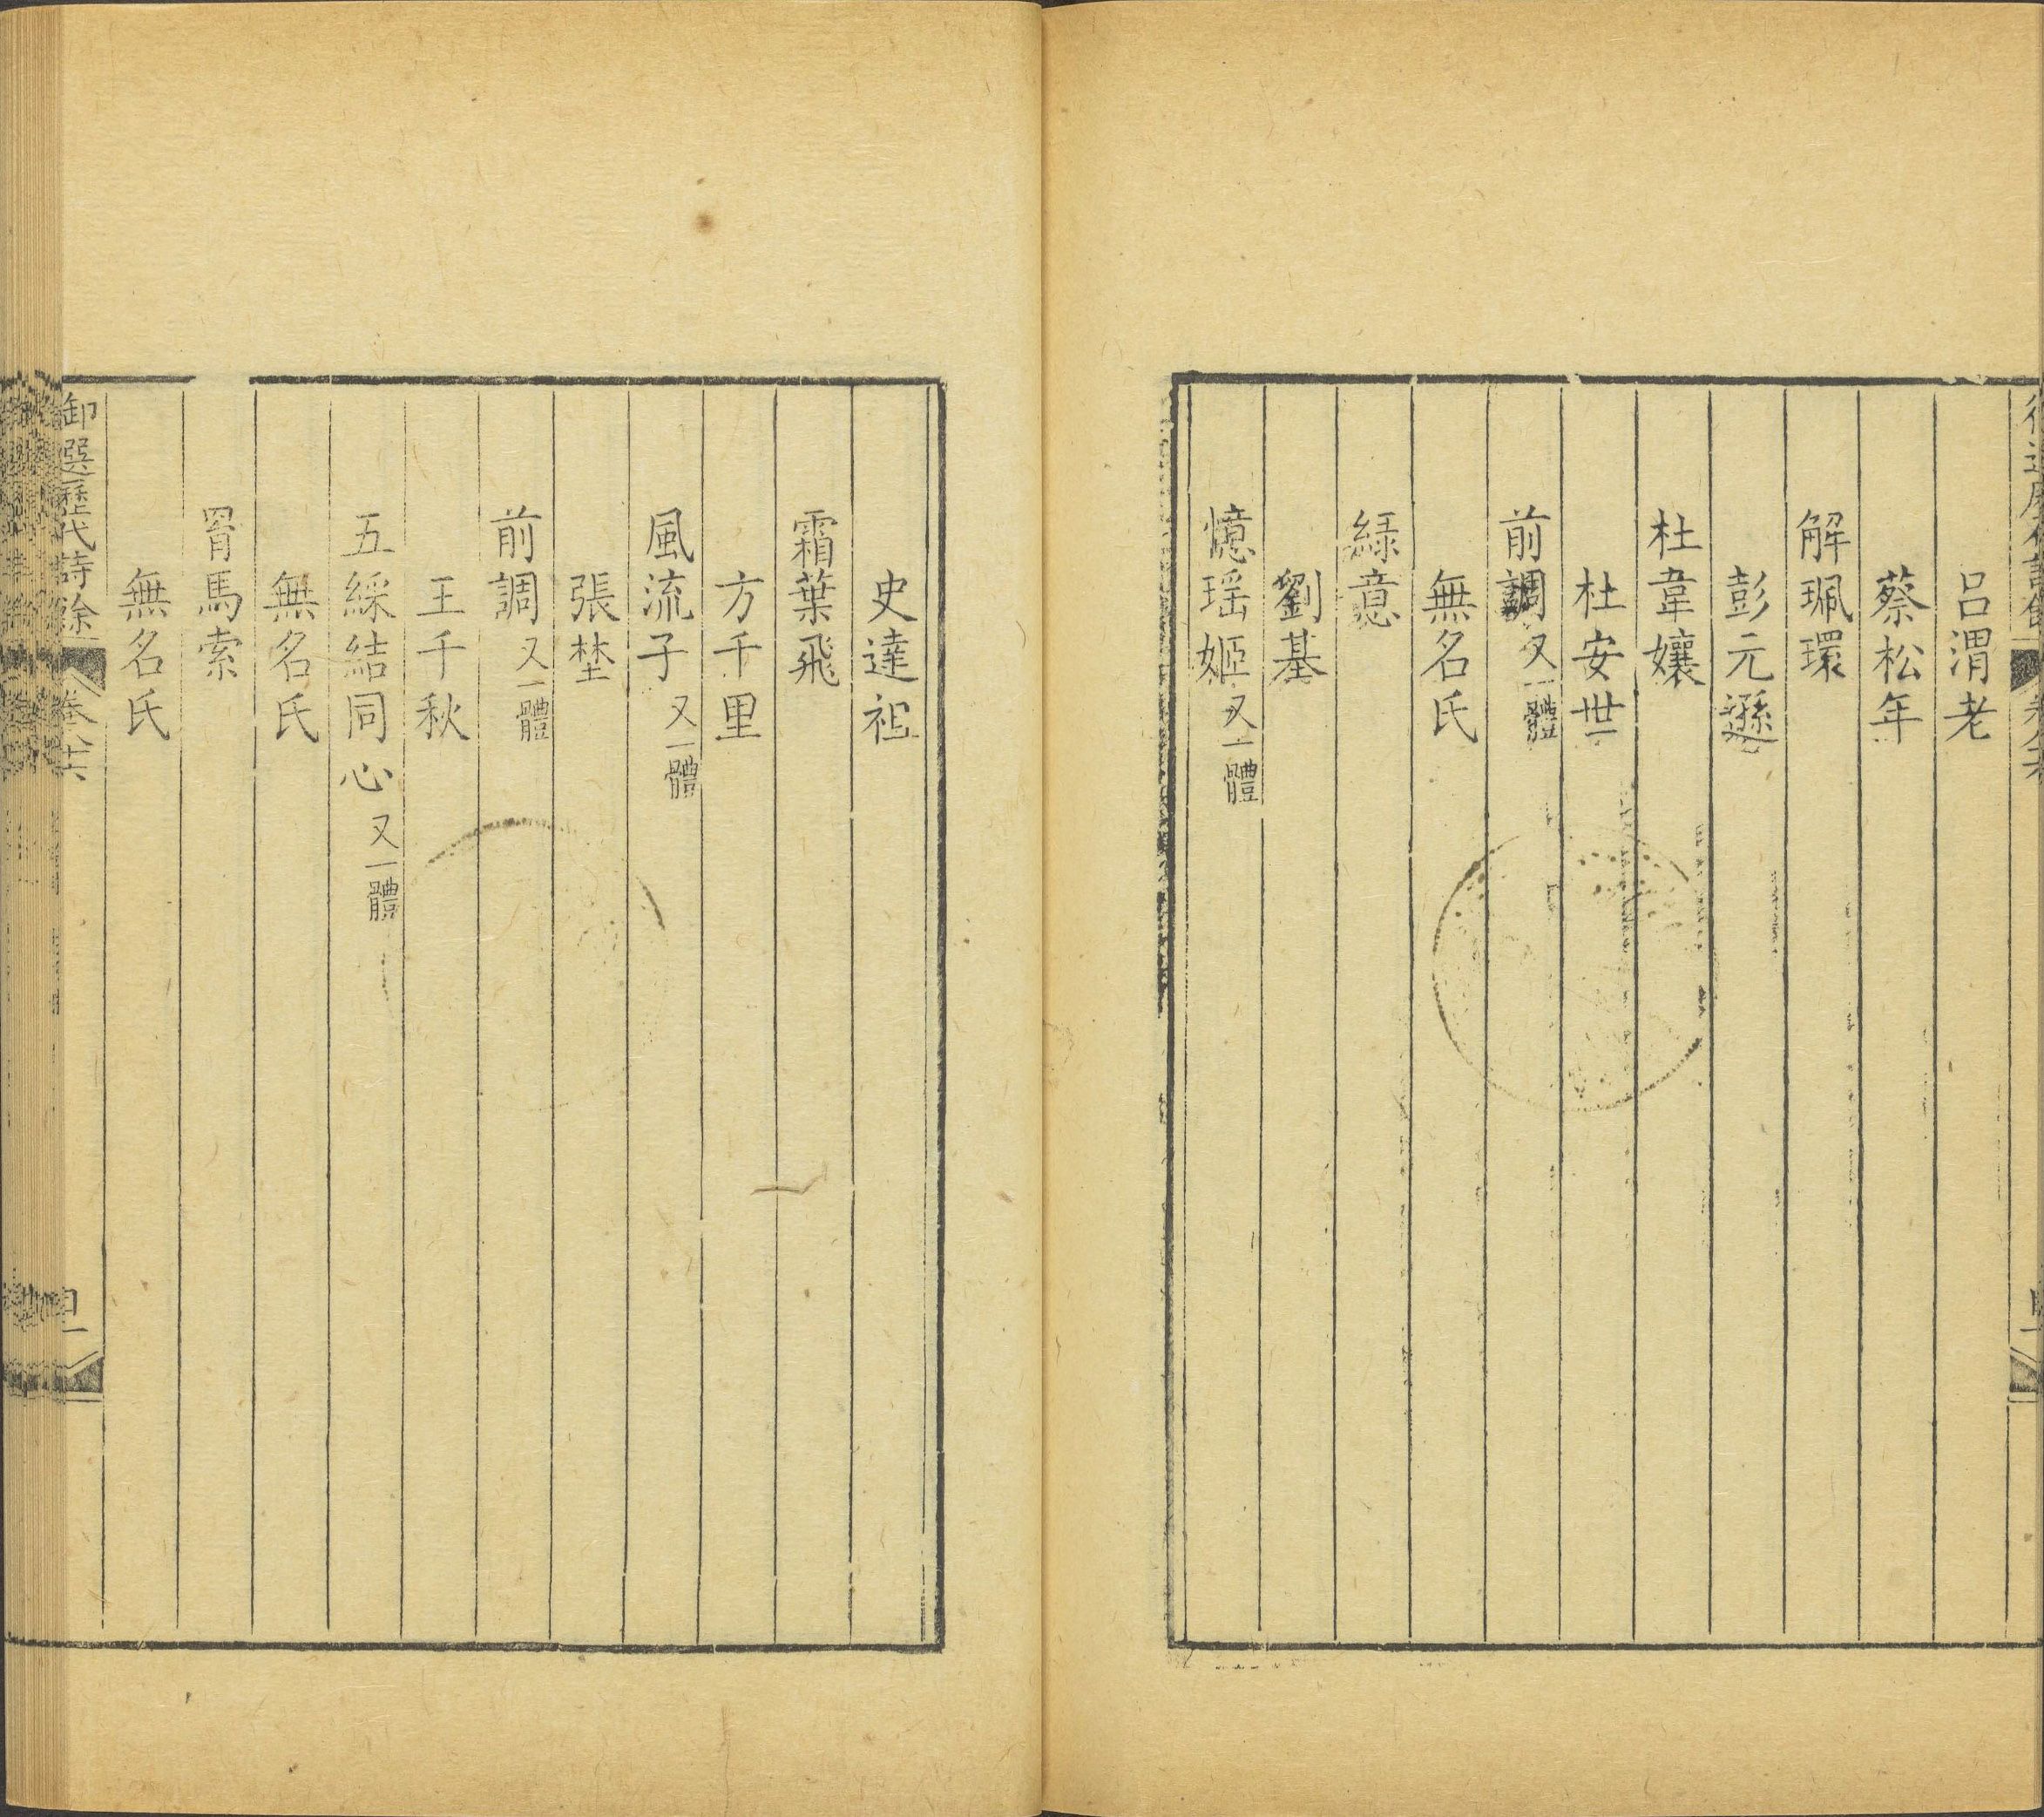 呂渭老
蔡松年
解珮環
彭元遜
杜韋孃
杜安世
前調又一體
無名氏
綠意
劉基
憶瑶姬又一體
史達祖
霜葉飛
方千里
風流子又一體
張埜
前調又一體
王千秋
五綵結同心又一體
無名氏
罥馬索
無名氏
御選歷代詩餘 卷八十六